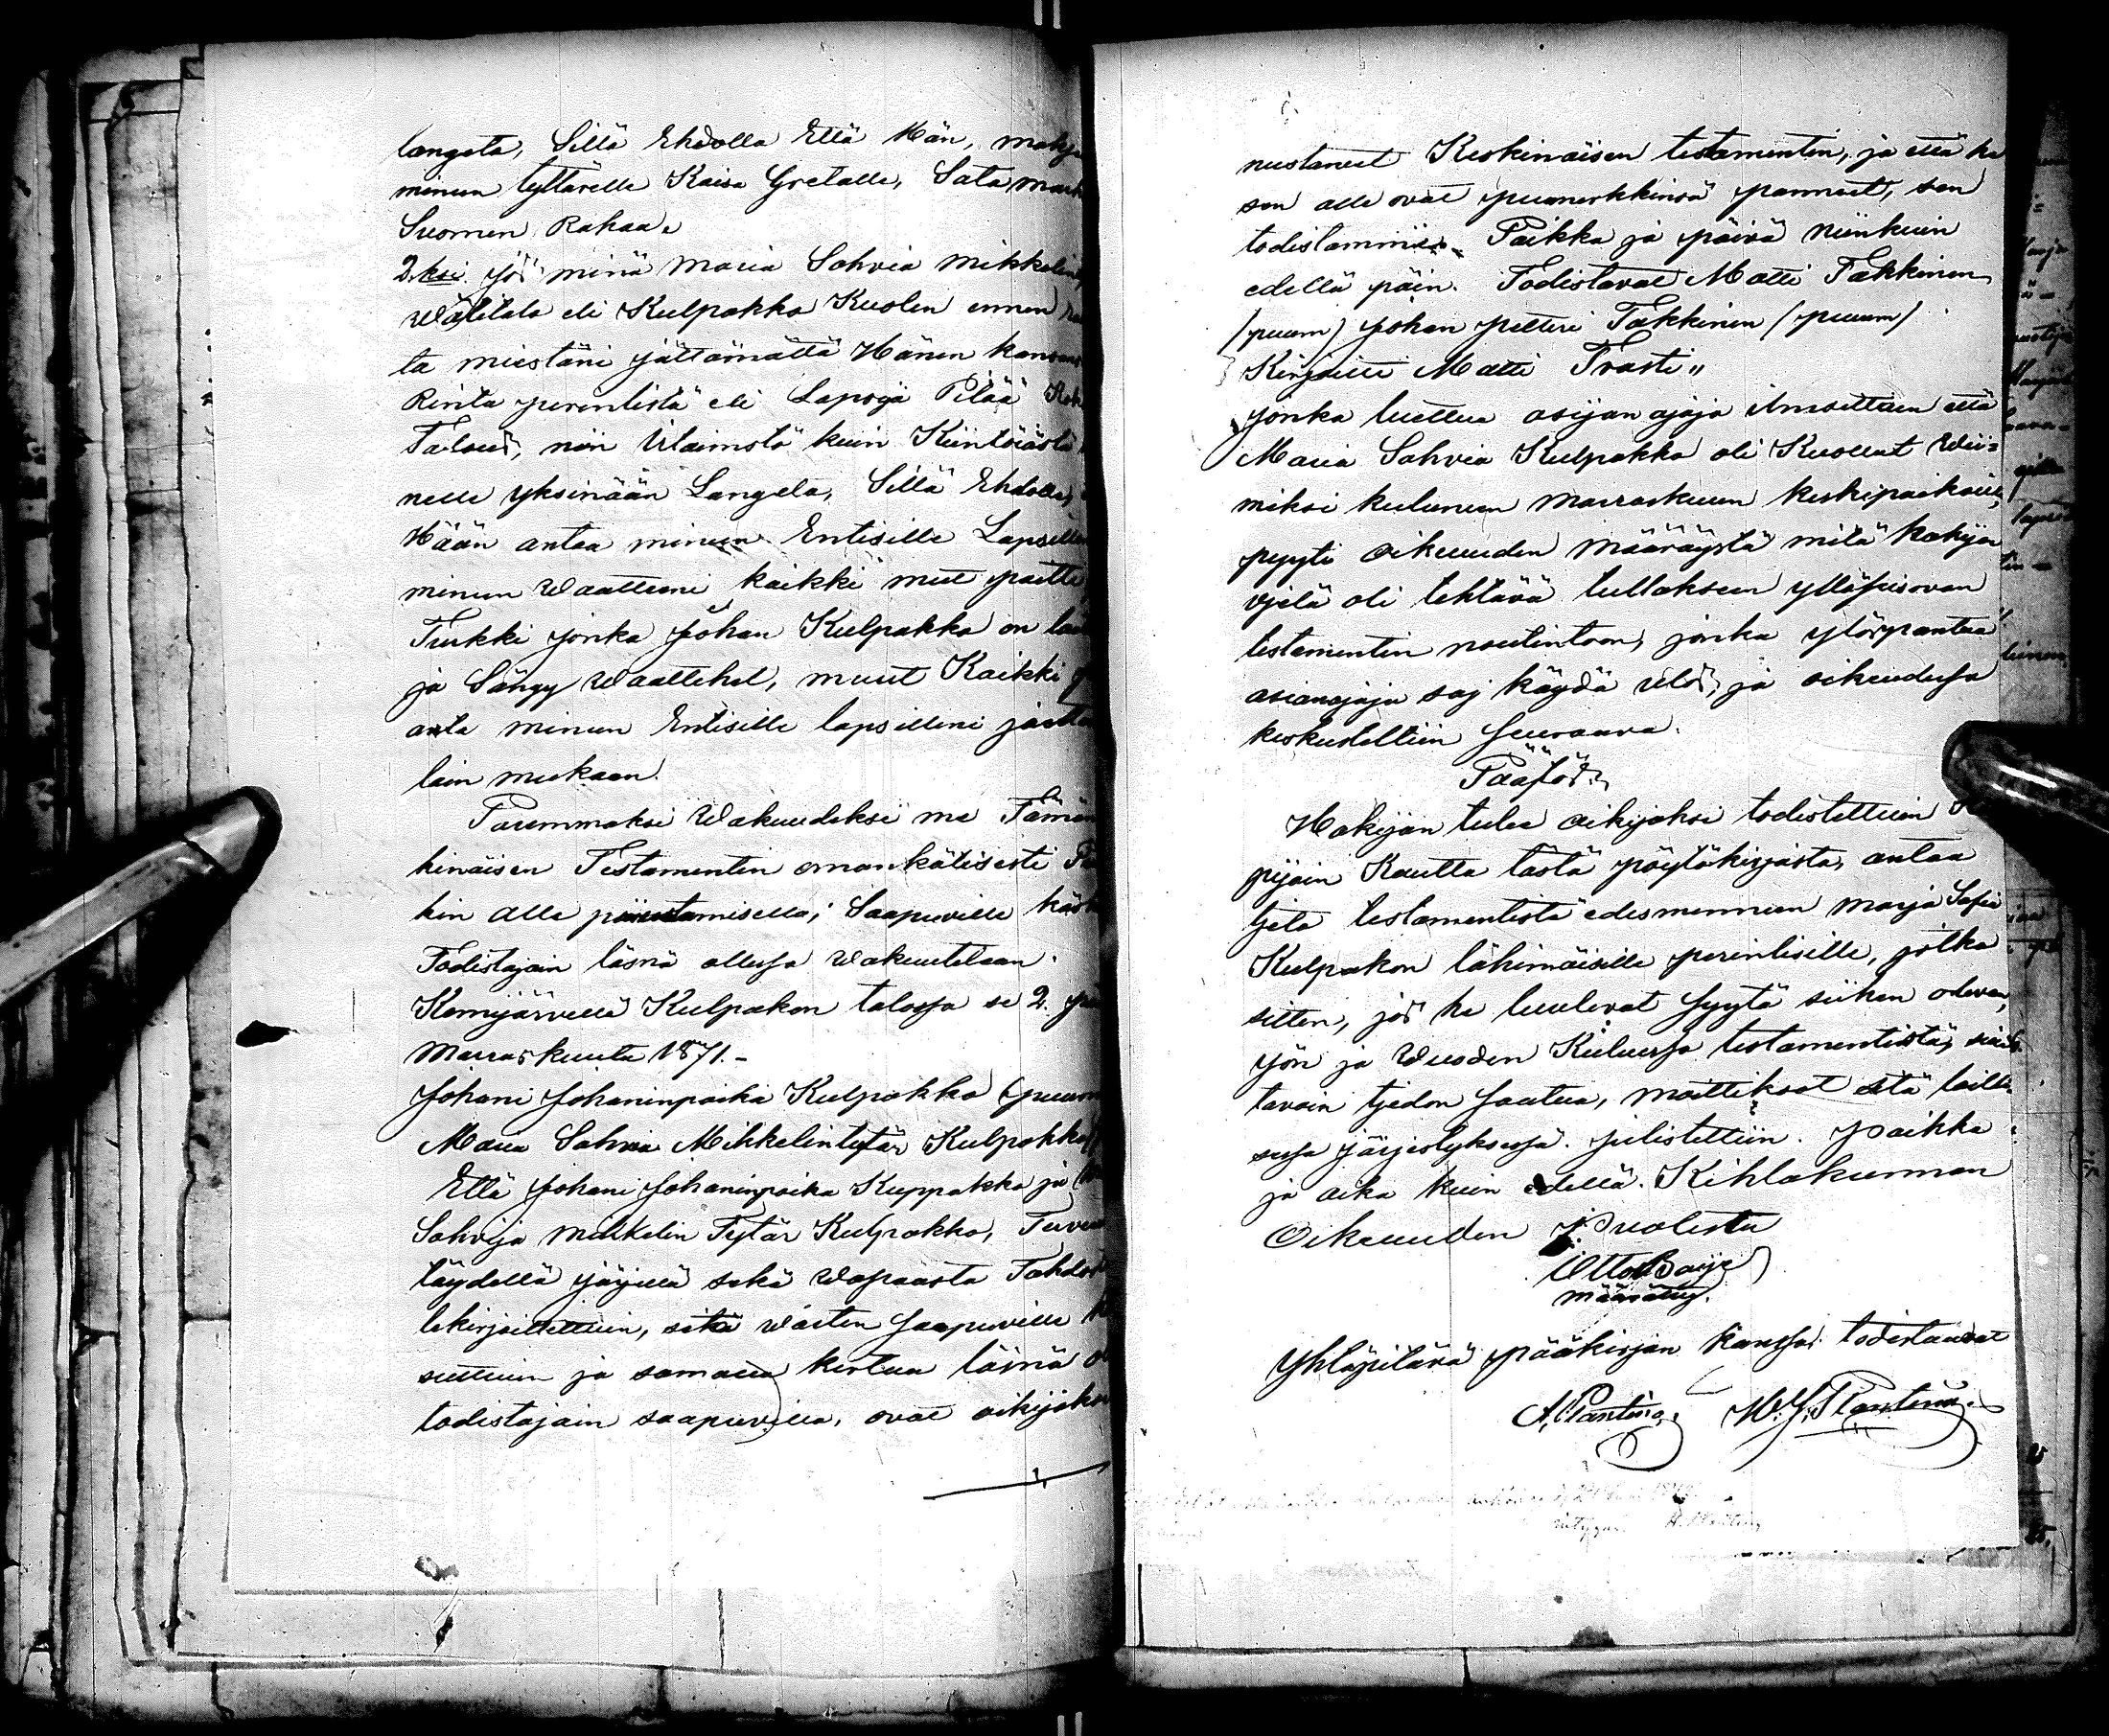 langeta, Sillä Ehdolla Että Hän, maksa
minun tyttärelle Kaisa Gretalle, Sata mark
Suomen Rahaa.
2.ksi Jos minä Maria Sohvia Mikkelin
Wälitalo eli Kulpakko Kuolen ennen
ta miestäni jättämättä Hänen kanssans
Rinta perintistä eli Lapsija Pitää Kok
Talous, niin Utaimstö kuin Kiintöästö
nelle yksinään Langeta, Sillä Ehdolla,
Hään antaa minun Entisille Lapsille
minun Waatteeni kaikki muut paitti
Turkki jonka Johan Kulpakko on
ja Sängy Waattehet, muut Kaikki
anta minun Entisille lapsilleni jaetta
lain mukaan.
Paremmaksi Wakuudeksi me Tämän
hinäisen Testamentin omankätisesti
hin alle piirustamisella; Saapuville
Todistajain läsnä ollessa Wakuutetaan.
Kemijärvellä Kulpakon talossa se 2. p
Marraskuuta 1871.-
Johani Johaninpoika Kulpakko (puum
Maria Sohvia Mikkelintytär Kulpakko
Että Johani Johaninpoika Kuppakko ja
Sohvija Mikkelin Tytär Kulpakko, Terve
täydellä järjellä sekä Wapaasta Tahdost
lekirjoitettuin, sitä Warten Saapuville
suttuin ja samalla kertaa läsnä o
todistajain saapuvilla, ovat oikijaks
nustaneet Keskinäisen testamentin, ja että he
sen alle ovat puumerkkinsä panneet, sen
todistamme. Paikka ja päivä niinkuin
edellä päin. Todistavat Matti Takkinen
/puum/ Johan Petteri Takkinen /puum/
Kirjoitti Matti Trasti"
Jonka luettua asijan ajaja ilmoittaen että
Maria Sohvia Kulpakko oli Kuollut Wii=
miksi kuluneen Marraskuun keskipaikoilla,
pyyti oikeuden määräystä mitä hakijan
vjelä oli tehtävä tullaksen ylläpisovan
testamentin nautintoon, jonka ylöspantua
asianajaja sai käydä ulos, ja oikeudessa
keskusteltiin Seuraava.
Päätös;
Hakijan tulee oikijaksi todistettuin
pijain Kautta tästä pöytäkirjasta, antaa
tjeto testamentistä edesmenneen Marja Sofia
Kulpakon lähimäisille perintisille, jotka
sitten, jos he luulevat Syytä siihen olevan,
yön ja Wuoden Kuluessa testamentistä,
tavain tjedon Saatua, moittikoot sitä lailli
sessa järjestyksessä. Julistettiin. Paikka
ja aika kuin edellä. Kihlakunnan
Oikeuden Puolesta
Otto
määrätty.
Yhtäpitävä pääkirjan Kanssa todistaavat
A. Plantin. W. G. Plantin.